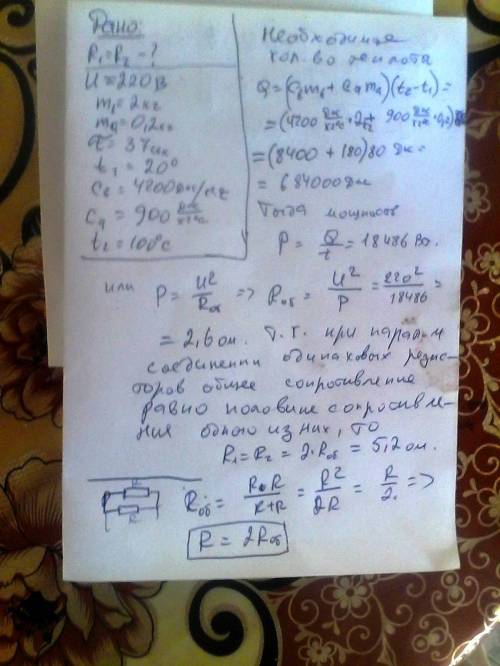 Дано:
R₁=R₂ - ?
U=220В
m₁=2кг
mₐ=0,2кг
τ=37
t₁=20°
Cв=4200дж/кг
Cₐ=900 дж/кг°c
t₂=100°c
Необходимое
кол. во теплота
Q=(Cвm₁+Cₐmₐ)(t₂-t₁)=
=(4200 дж/кг°c · 2кг + 900 дж/кг°c · 0,2)
=(8400+180)80 дж=
=684000дж
Тогда мощность
P = Q/t = 18486 Вт.
или P = U²/Rоб => Rоб = U²/P = 220²/18486 =
= 2,6 ом. Т.г. при паралл
соединении одинаковых резис-
торов общее сопротивление
равно половине сопротивле-
ния одного из них, то
R₁=R₂=2·Rоб=5,2ом.
R
R
Rоб = R·R/R+R = R²/2R = R/2. =>
R = 2Rоб